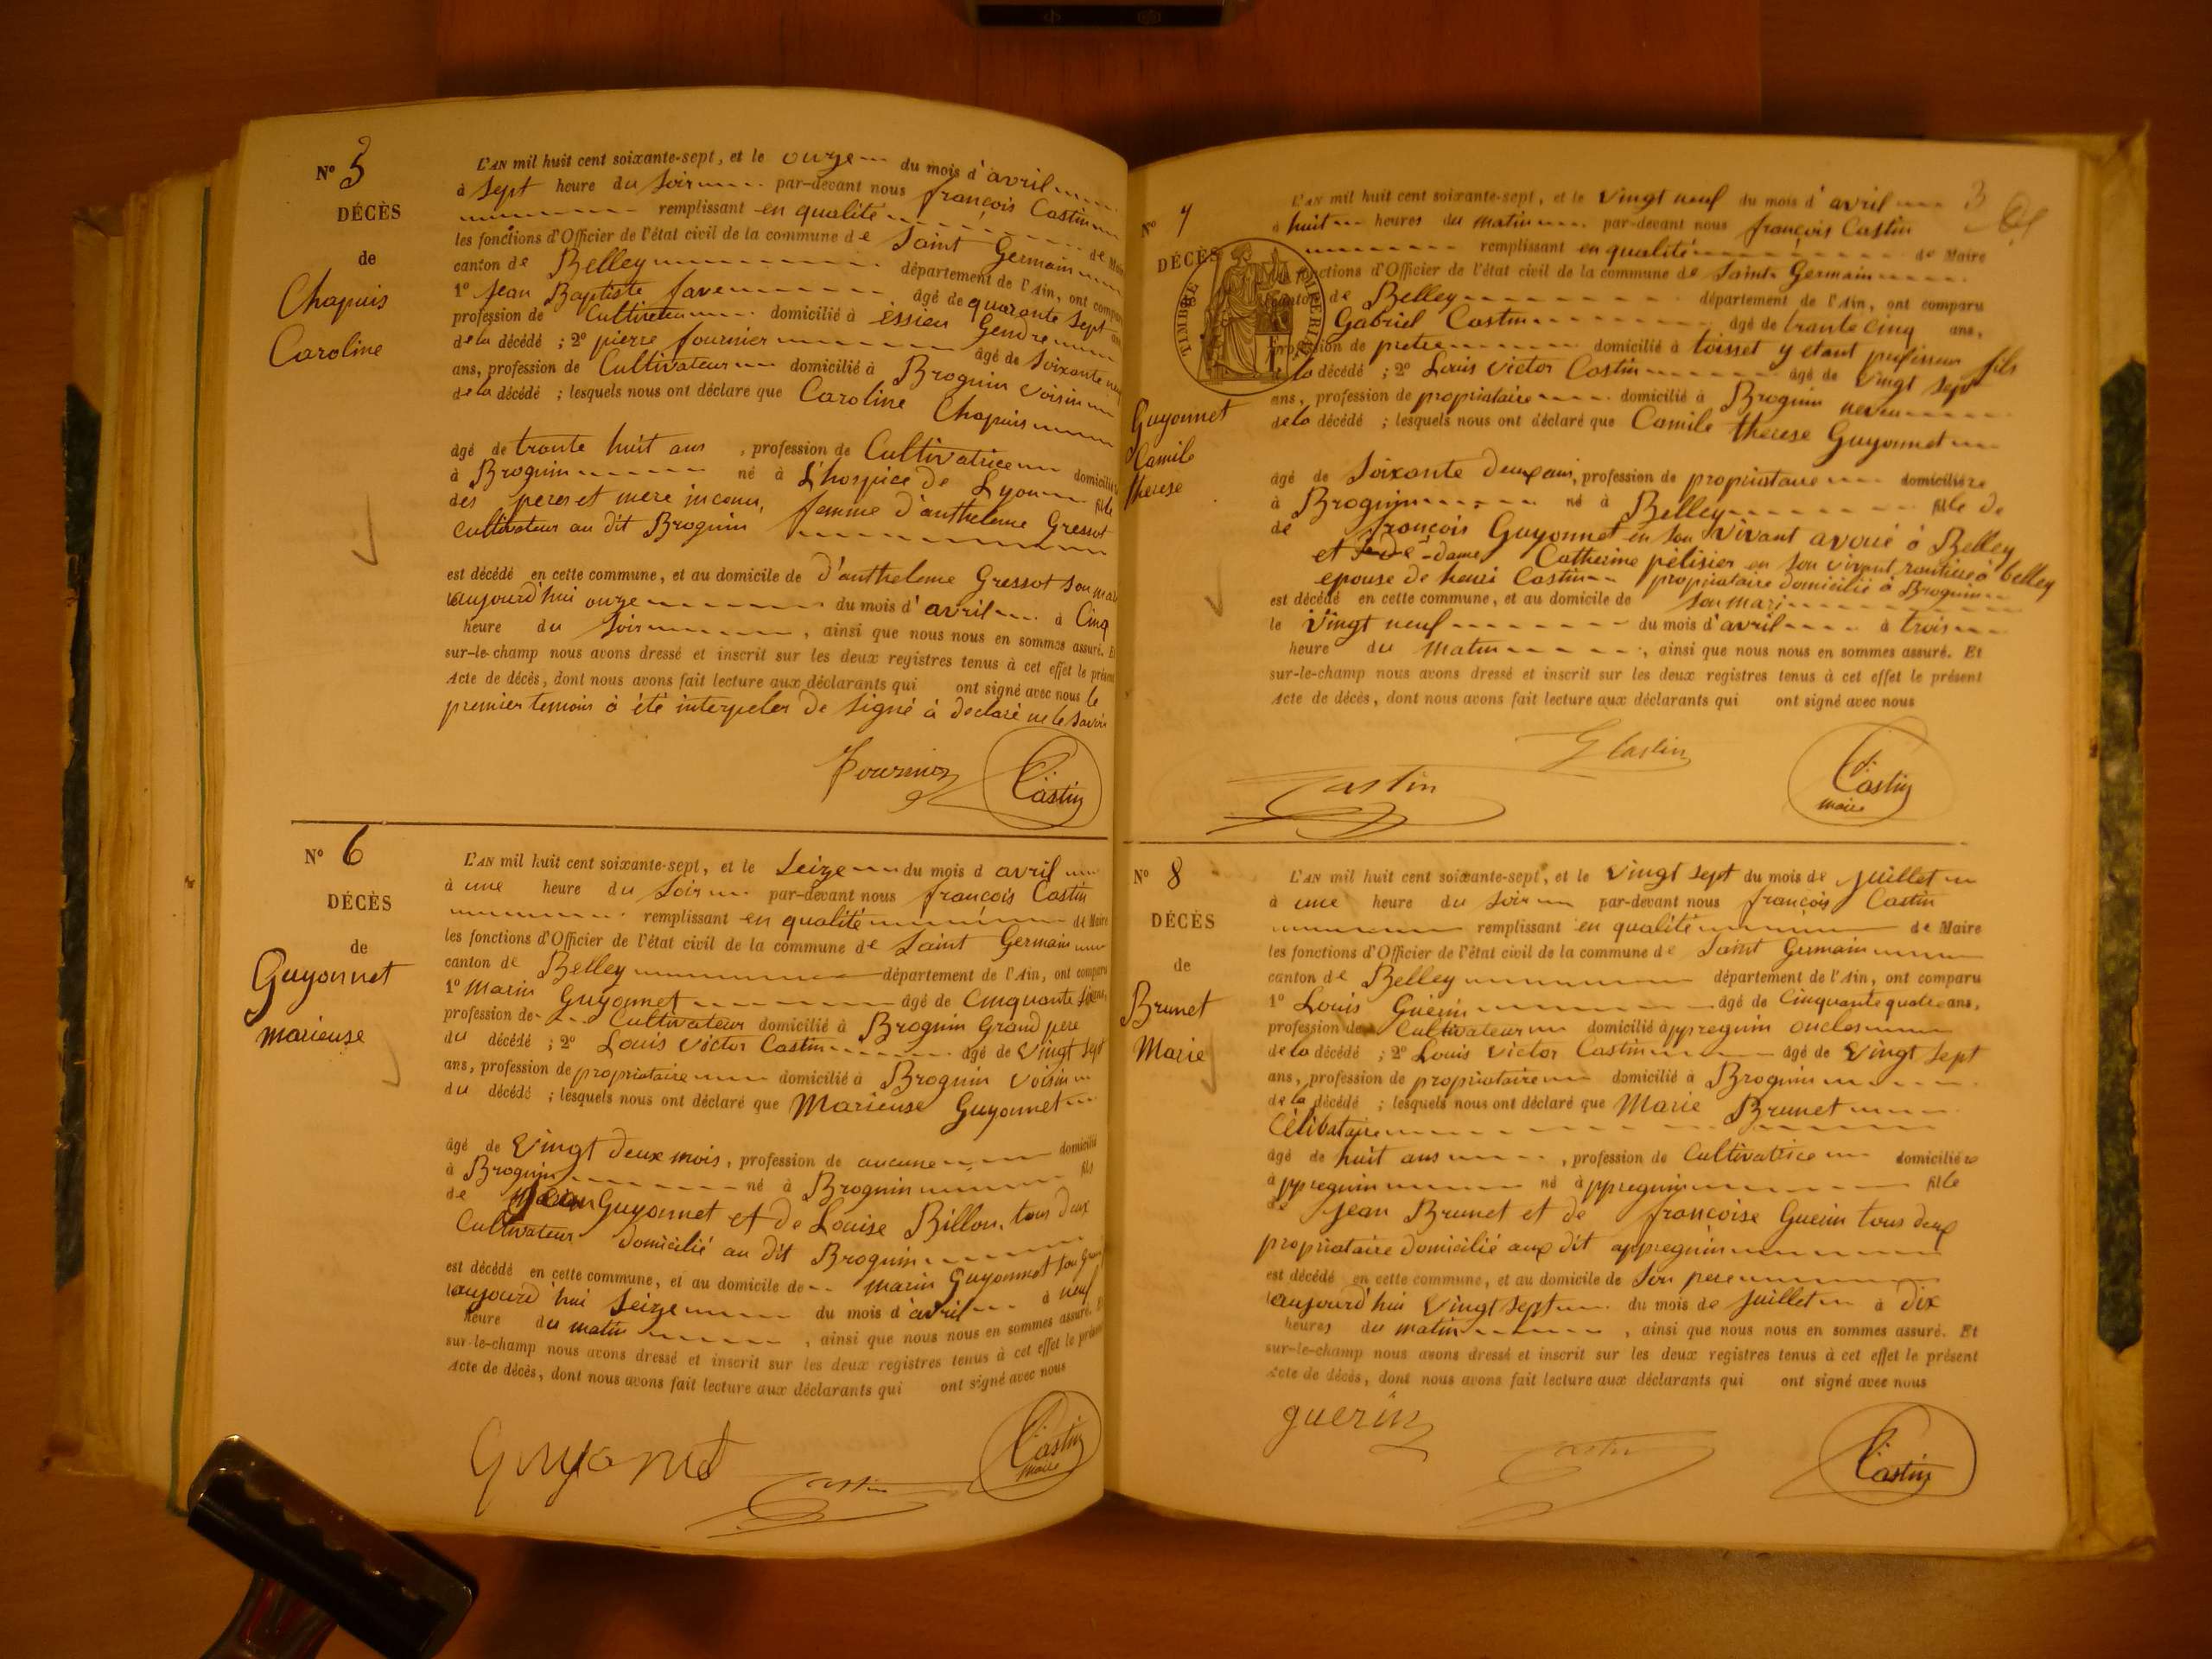 Nº 5
DÉCÈS
de
Chapuis
Caroline
L'AN mil huit cent soixante-sept, et le onze du mois d'avril
à sept heure du soir par-devant nous françois Castin
remplissant en qualité de Maire
les fonctions d'Officier de l'état civil de la commune de Saint Germain
canton de Belley département de l'Ain, ont comparu
1º Jean Baptiste fave âgé de quarante sept ans
profession de Cultivateur domicilié à éssieu Gendre
de la décédé ; 2º pierre fournier âgé de soixante neuf
ans, profession de Cultivateur domicilié à Brognin voisin
de la décédé ; lesquels nous ont déclaré que Caroline Chapuis
âgé de trante huit ans, profession de Cultivatrice domicilié
à Brognin né à L'hospice de Lyon fille
des peres et mere inconu, femme d'anthelème Gressot
cultivateur au dit Brognin
est décédé en cette commune, et au domicile de d'anthelème Gressot son mari
aujourd'hui onze du mois d'avril à Cinq
heure du soir, ainsi que nous nous en sommes assuré. Et
sur-le-champ nous avons dressé et inscrit sur les deux registres tenus à cet effet le présent
Acte de décès, dont nous avons fait lecture aux déclarants qui ont signé avec nous le
premier temoin à été interpeler de signé à declaré ne le savoir
fournier Castin
Nº 6
DÉCÈS
de
Guyonnet
marieuse
L'AN mil huit cent soixante-sept, et le seize du mois d avril
à une heure du soir par-devant nous françois Castin
remplissant en qualité de Maire
les fonctions d'Officier de l'état civil de la commune de Saint Germain
canton de Belley département de l'Ain, ont comparu
1º Marin Guyonnet âgé de cinquante six ans,
profession de Cultivateur domicilié à Brognin Grand pere
du décédé ; 2º Louis victor Castin âgé de vingt sept
ans, profession de propriataire domicilié à Brognin voisin
du décédé ; lesquels nous ont déclaré que Marieuse Guyonnet
âgé de vingt deux mois, profession de aucune domicilié
à Brognin né à Brognin fils
de Jean Guyonnet et de Louise Billon, tous deux
Cultivateur domicilié au dit Brognin
est décédé en cette commune, et au domicile de marin Guyonnet son grand
aujourd'hui seize du mois d'avril à neuf
heure du matin, ainsi que nous nous en sommes assuré. Et
sur-le-champ nous avons dressé et inscrit sur les deux registres tenus à cet effet le présent
Acte de décès, dont nous avons fait lecture aux déclarants qui ont signé avec nous
Guyonet Castin Castin
maire
3
Nº 7
DÉCÈS
TIMBRE IMPERIAL
Guyonnet
Camile
therese
L'AN mil huit cent soixante-sept, et le vingt neuf du mois d'avril
à huit heures du matin par-devant nous françois Castin
remplissant en qualité de Maire
les fonctions d'Officier de l'état civil de la commune de Saint Germain
canton de Belley département de l'Ain, ont comparu
Gabriel Castin âgé de trante cinq ans,
profession de pretre domicilié à toisset y etant profisseur fils
de la décédé ; 2º Louis victor Castin âgé de vingt sept
ans, profession de propriataire domicilié à Brognin neveu
de la décédé ; lesquels nous ont déclaré que Camile therese Guyonnet
âgé de soixante deux ans, profession de propriataire domiciliée
à Brognin né à Belley fille de
de françois Guyonnet en son vivant avoué à Belley
et dame Catherine pélisier en son vivant rentière à belley
epouse de henri Castin propriataire domicilié à Brognin
est décédé en cette commune, et au domicile de son mari
le vingt neuf du mois d'avril à trois
heure du matin, ainsi que nous nous en sommes assuré. Et
sur-le-champ nous avons dressé et inscrit sur les deux registres tenus à cet effet le présent
Acte de décès, dont nous avons fait lecture aux déclarants qui ont signé avec nous
G Castin
Castin Castin
maire
Nº 8
DÉCÈS
de
Brunet
Marie
L'AN mil huit cent soixante-sept, et le vingt sept du mois de juillet
à une heure du soir par-devant nous françois Castin
remplissant en qualité de Maire
les fonctions d'Officier de l'état civil de la commune de Saint Germain
canton de Belley département de l'Ain, ont comparu
1º Louis Guérin âgé de cinquante quatre ans,
profession de Cultivateur domicilié à appregnin oncles
de la décédé ; 2º Louis victor Castin âgé de vingt sept
ans, profession de propriataire domicilié à Brognin
de la décédé ; lesquels nous ont déclaré que Marie Brunet
Célibataire
âgé de huit ans, profession de Cultivatrice domiciliée
à ppregnin né à ppregnin fille
de jean Brunet et de françoise Guerin tous deux
propriataire domicilié aux dit appregnin
est décédé en cette commune, et au domicile de son pere
aujourd'hui vingt sept du mois de juillet à dix
heures du matin, ainsi que nous nous en sommes assuré. Et
sur-le-champ nous avons dressé et inscrit sur les deux registres tenus à cet effet le présent
Acte de décès, dont nous avons fait lecture aux déclarants qui ont signé avec nous
guerin
Castin Castin